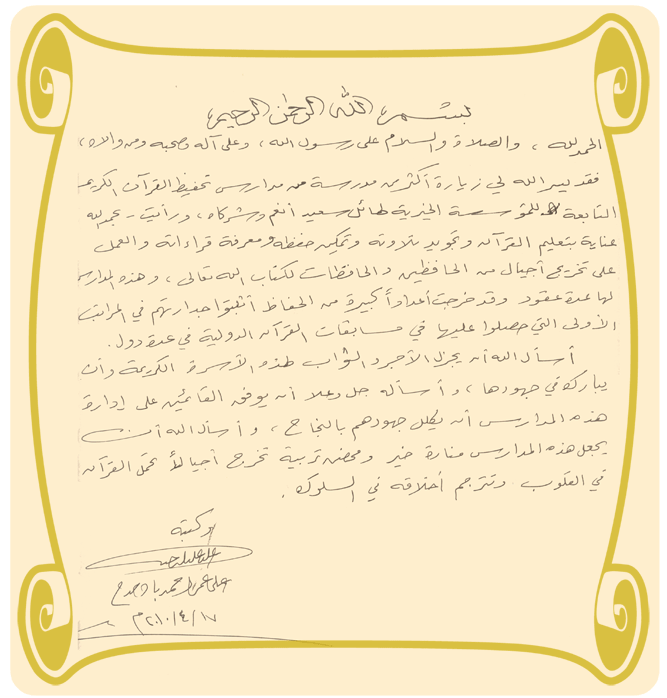 بسم الله الرحمن الرحيم
الحمد لله ، والصلاة والسلام على رسول الله ، وعلى آله وصحبه ومن والاه ،
فقد يسر الله لي زيارة أكثر من مدرسة من مدارس تحفيظ القرآن الكريم
التابعة للمؤسسة الخيرية لهائل سعيد أنعم وشركاه ، ورأيت - بحمد الله
عناية بتعليم القرآن وتجويد تلاوته وتمكين حفظه ومعرفة قراءاته والعمل
على تخريج أجيال من الحافظين والحافظات لكتاب الله تعالى ، وهذه المدارس
لها عدة عقود وقد خرجت أعداداً كبيرة من الحفاظ أثبتوا جدارتهم في المراتب
الأولى التي حصلوا عليها في مسابقات القرآن الدولية في عدة دول .
أسأل الله أن يجزل الأجر والثواب لهذه الأسرة الكريمة وأن
يبارك في جهودها ، وأسأله جل وعلا أن يوفق القائمين على إدارة
هذه المدارس أن يكلل جهودهم بالنجاح ، وأسأل الله أن
يجعل هذه المدارس منارة خير ومحضن تربية تخرج أجيالاً تحمل القرآن
في القلوب وتترجم أخلاقه في السلوك .
وكتبه
علي عمر أحمد بادحدح
١٧/٤/٢٠١٠م